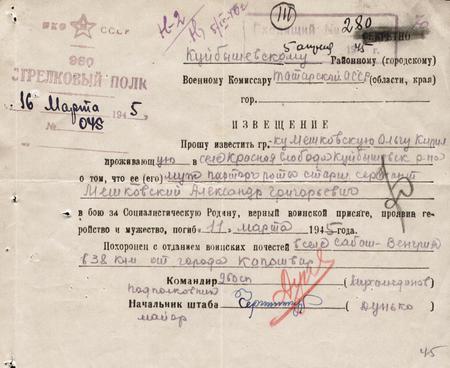 НКО СССР
960
СТРЕЛКОВЫЙ ПОЛК
16 Марта 1945,
№ 048
Н-2
III
Входящий № 280
СЕКРЕТНО
5 апреля 45
Куйбышевскому Районному (городскому)
Военному Комиссару Татарской АССР (области, края)
гор.
ИЗВЕЩЕНИЕ
Прошу известить гр-ку Мешковскую Ольгу Кирил
проживающую в село Красная слобода Куйбышевск р-на
о том, что ее (его) муж парторг роты старш. сержант
Мешковский Александр Григорьевич
в бою за Социалистическую Родину, верный воинской присяге, проявив ге-
ройство и мужество, погиб 11 марта 1945 года.
Похоронен с отданием воинских почестей в селе Сабош-Венгрия
в 38 км от города Капошвар
Командир 960сп
подполковник
Начальник штаба (Дунько)
майор
45